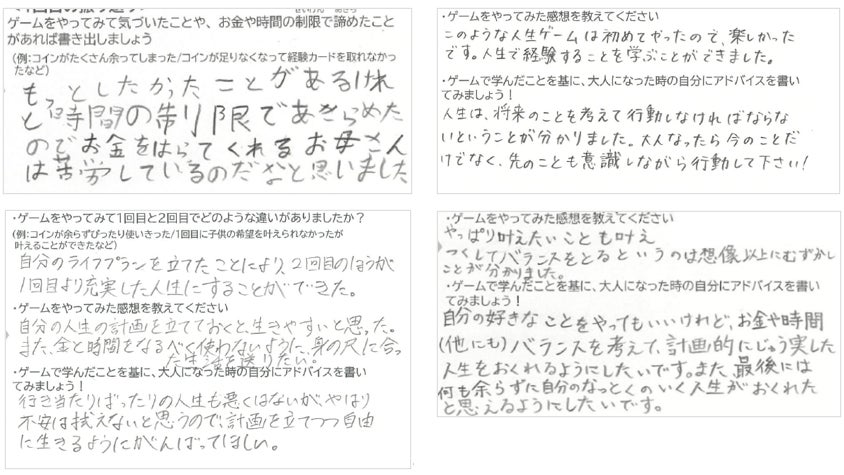 ・ゲームをやってみて気づいたことや、お金や時間の制限で諦めたこと
があれば書き出しましょう
(例:コインがたくさん余ってしまった/コインが足りなくなって経験カードを取れなかっ
たなど)
もっとしたかったことがあるけれ
ど時間の制限であきらめた
のでお金をはらってくれるお母さん
は苦労しているのだなと思いました
・ゲームをやってみた感想を教えてください
このような人生ゲームは初めてやったので、楽しかった
です。人生で経験することを学ぶことができました。
・ゲームで学んだことを基に、大人になった時の自分にアドバイスを書い
てみましょう!
人生は、将来のことを考えて行動しなければならな
いということが分かりました。大人なったら今のことだ
けでなく、先のことも意識しながら行動して下さい!
・ゲームをやってみて1回目と2回目でどのような違いがありましたか?
(例:コインが余らずぴったり使いきった/1回目に子供の希望を叶えられなかったが
叶えることができたなど)
自分のライフプランを立てたことにより、2回目のほうが
1回目より充実した人生にすることができた。
・ゲームをやってみた感想を教えてください
自分の人生の計画を立てておくと、生きやすいと思った。
また、金と時間をなるべく使わないように、身の尺に合っ
た生活を送りたい。
・ゲームで学んだことを基に、大人になった時の自分にアドバイスを書い
てみましょう!
行き当たりばったりの人生も悪くはないが、やはり
不安は拭えないと思うので、計画を立てつつ自由
に生きるようにがんばってほしい。
・ゲームをやってみた感想を教えてください
やっぱり叶えたいことも叶え
つくしてバランスをとるというのは想像以上にむずかし
ことが分かりました。
・ゲームで学んだことを基に、大人になった時の自分にアドバイスを書い
てみましょう!
自分の好きなことをやってもいいけれど、お金や時間
(他にも)バランスを考えて、計画的にじゅう実した
人生をおくれるようにしたいです。また、最後には
何も余らずに自分のなっとくのいく人生がおくれた
と思えるようにしたいです。